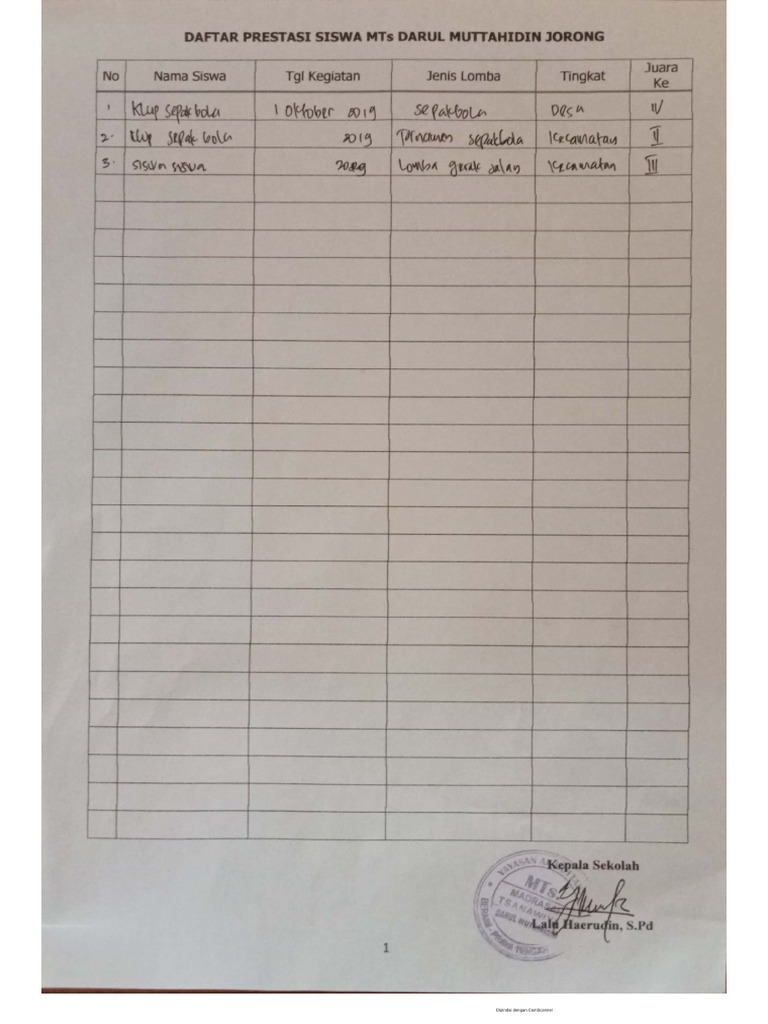 DAFTAR PRESTASI SISWA MTs DARUL MUTTAHIDIN JORONG
No Nama Siswa Tgl Kegiatan Jenis Lomba Tingkat Juara Ke
1 Klup sepak bola 1 Oktober 2019 sepakbola Desa IV
2. Klup sepak bola 2019 sepakbola Kecamatan II
3. siswa siswa Lomba gerak Jalan Kecamatan III
Kepala Sekolah
YAYASAN
MTs
MADRAS
TSANAWI
DARUL MU
Lalu Haerudin, S.Pd
1
Dipindai dengan CamScanner